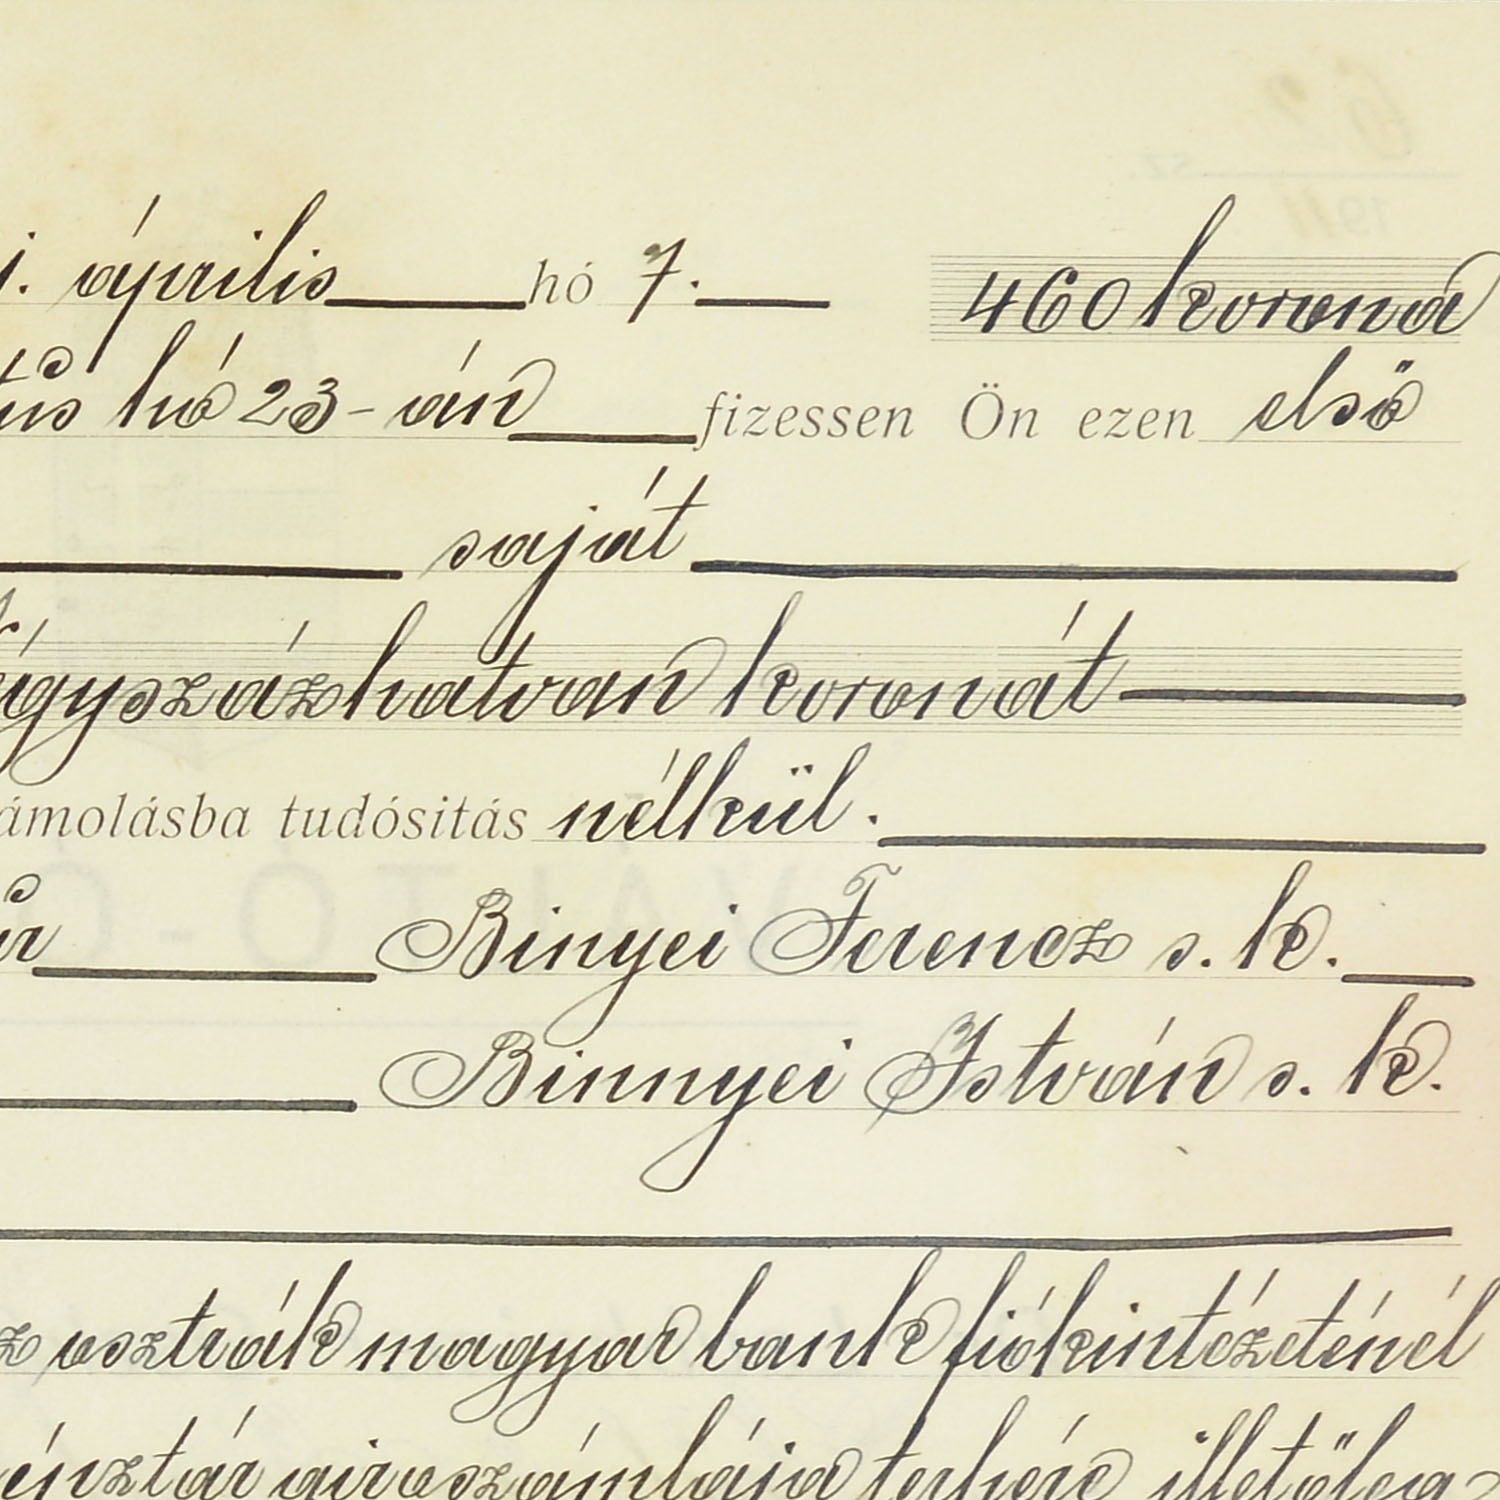 1. április hó 7. 460 korona
tus hó 23-án fizessen Ön ezen első
saját
égyszázhatvan koronát
ámolásba tudósitás nélkül.
úr Binyei Ferencz s. k.
Binnyei István s. k.
z osztrák magyar bank fiókintézeténél
énztár giroszámlája terhére illetőleg